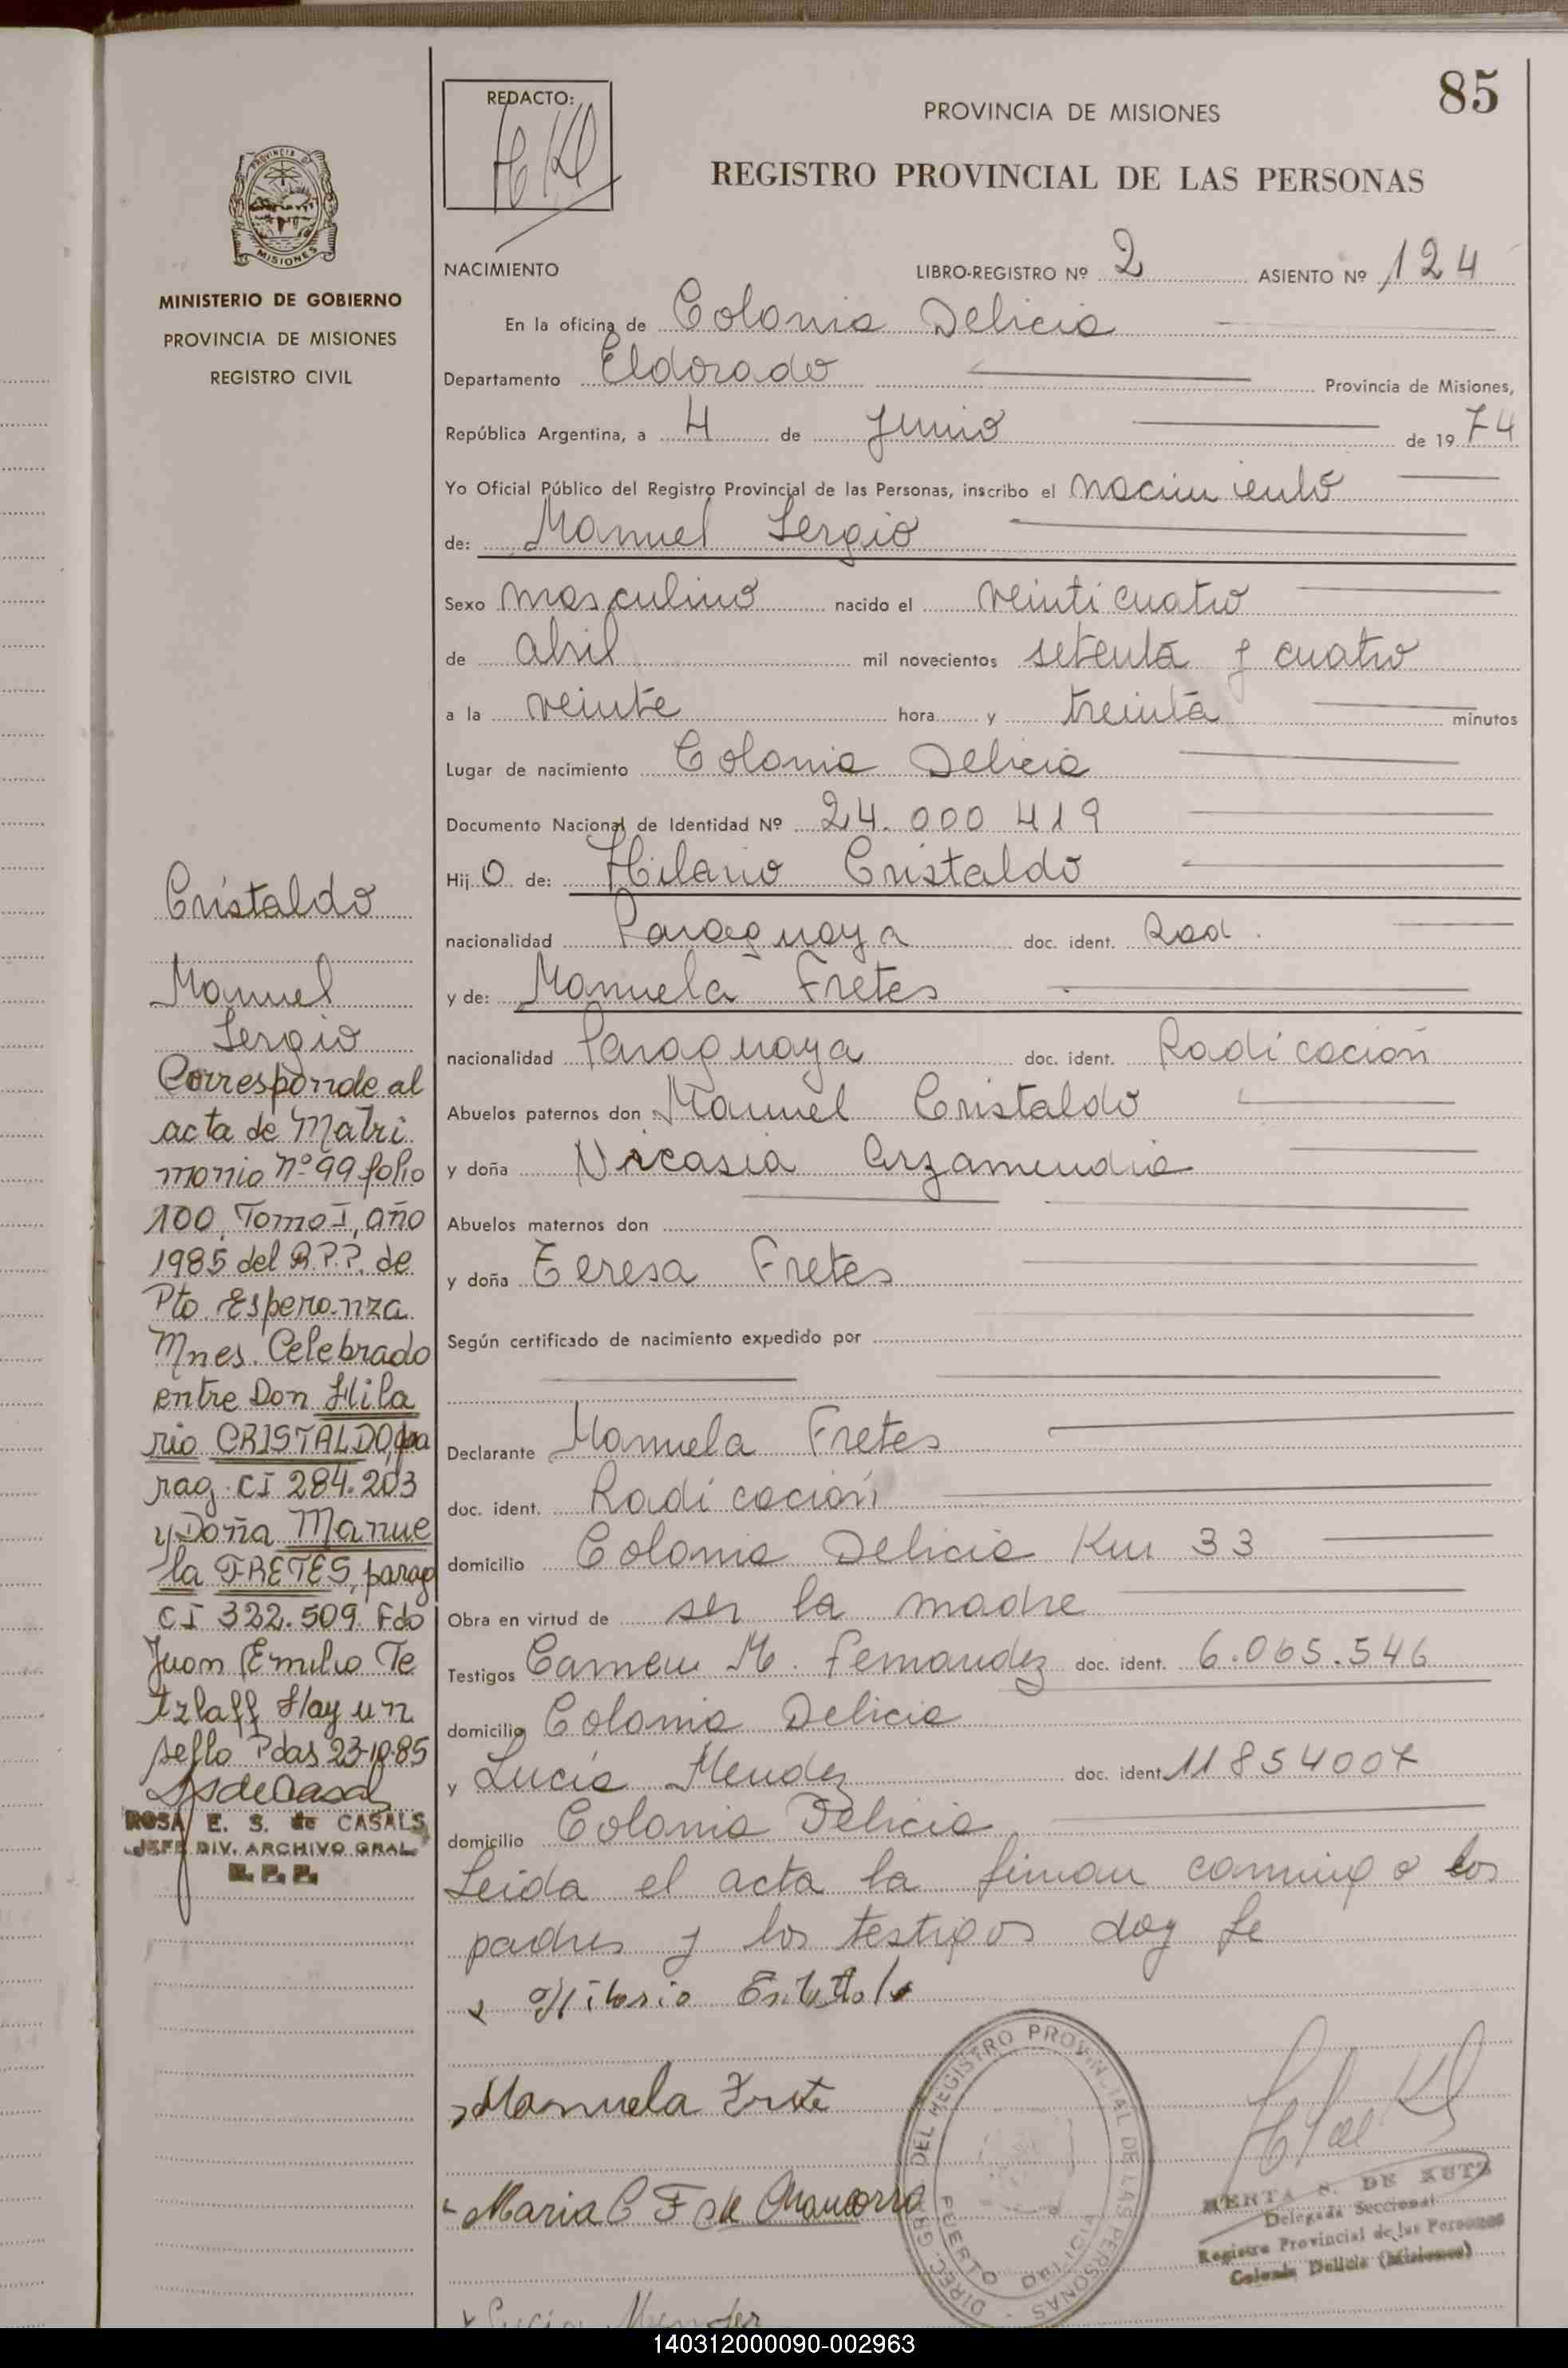 85
REDACTO:
PROVINCIA DE MISIONES
REGISTRO PROVINCIAL DE LAS PERSONAS
PROVINCIA DE
MISIONES
MINISTERIO DE GOBIERNO
PROVINCIA DE MISIONES
REGISTRO CIVIL
NACIMIENTO
LIBRO-REGISTRO Nº 2 ASIENTO Nº 124
En la oficina de Colonia Delicia
Departamento Eldorado Provincia de Misiones,
República Argentina, a 4 de Junio de 1974
Yo Oficial Público del Registro Provincial de las Personas, inscribo el nacimiento
de: Manuel Sergio
Sexo masculino nacido el veinticuatro
de abril mil novecientos setenta y cuatro
a la veinte hora y treinta minutos
Lugar de nacimiento Colonia Delicia
Documento Nacional de Identidad Nº 24.000 419
Hij o de: Hilario Cristaldo
nacionalidad Paraguaya doc. ident. Rad.
y de: Manuela Fretes
nacionalidad Paraguaya doc. ident. Radicación
Abuelos paternos don Manuel Cristaldo
y doña Nicasia Arzamendia
Abuelos maternos don
y doña Teresa Fretes
Según certificado de nacimiento expedido por
Declarante Manuela Fretes
doc. ident. Radicación
domicilio Colonia Delicia Km 33
Obra en virtud de ser la madre
Testigos Carmen M. Fernandez doc. ident. 6.065.546
domicilio Colonia Delicia
y Lucía Mendez doc. ident. 11854007
domicilio Colonia Delicia
Leida el acta la firman conmigo los
padres y los testigos doy fe
Hilario
Manuela Frete
Maria C F de
Lucia Mendez
Cristaldo
Manuel
Sergio
Corresponde al
acta de Matri
monio nº 99 folio
100, Tomo I, año
1985 del R.P.P. de
Pto. Esperanza
Mnes. Celebrado
entre Don Hila
rio CRISTALDO, pa
rag. CI 284.203
y Doña Manue
la FRETES, parag
CI 322.509. Fdo
Juan Emilio Te
tzlaff Hay un
sello Pdas 23-10-85
ROSA E. S. de CASALS
JEFE DIV. ARCHIVO GRAL.
R. P. P.
DIREC. GR. DEL REGISTRO PROVINCIAL DE LAS PERSONAS
PUERTO
DE KUTZ
Delegada Seccional
Registro Provincial de las Personas
Colonia Delicia (Misiones)
140312000090-002963